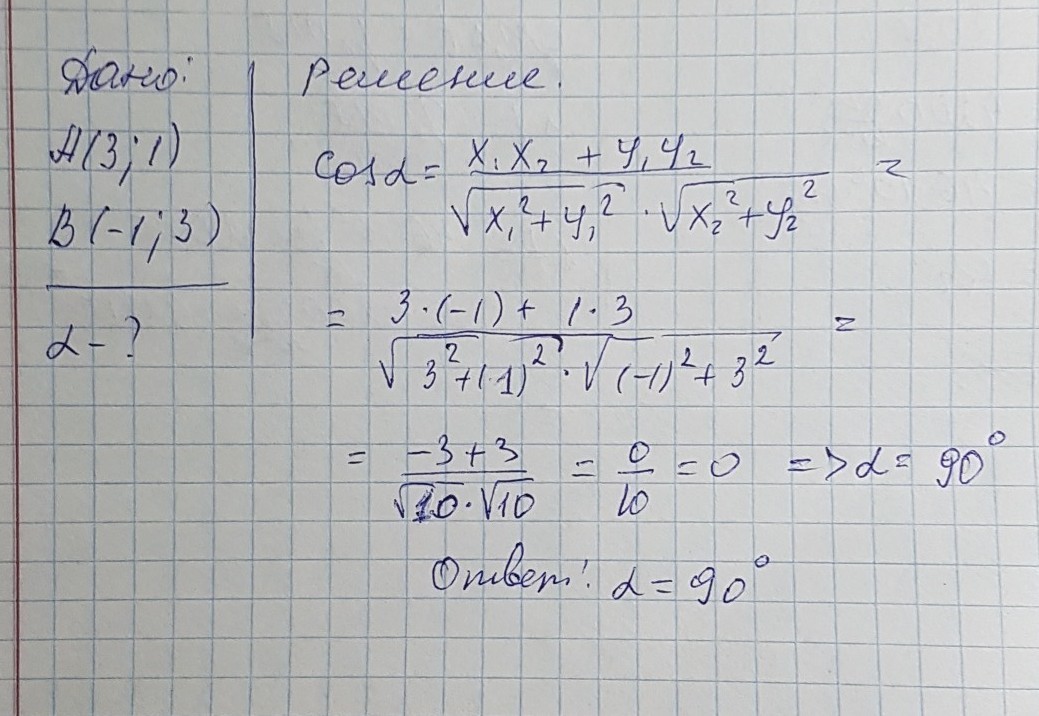 Дано:
A(3; 1)
B(-1; 3)
α - ?
Решение.
cos α = (x₁x₂ + y₁y₂) / (√(x₁² + y₁²) · √(x₂² + y₂²)) =
= (3·(-1) + 1·3) / (√(3² + (1)²) · √((-1)² + 3²)) =
= (-3+3) / (√10 · √10) = 0/10 = 0 => α = 90°
Ответ: α = 90°